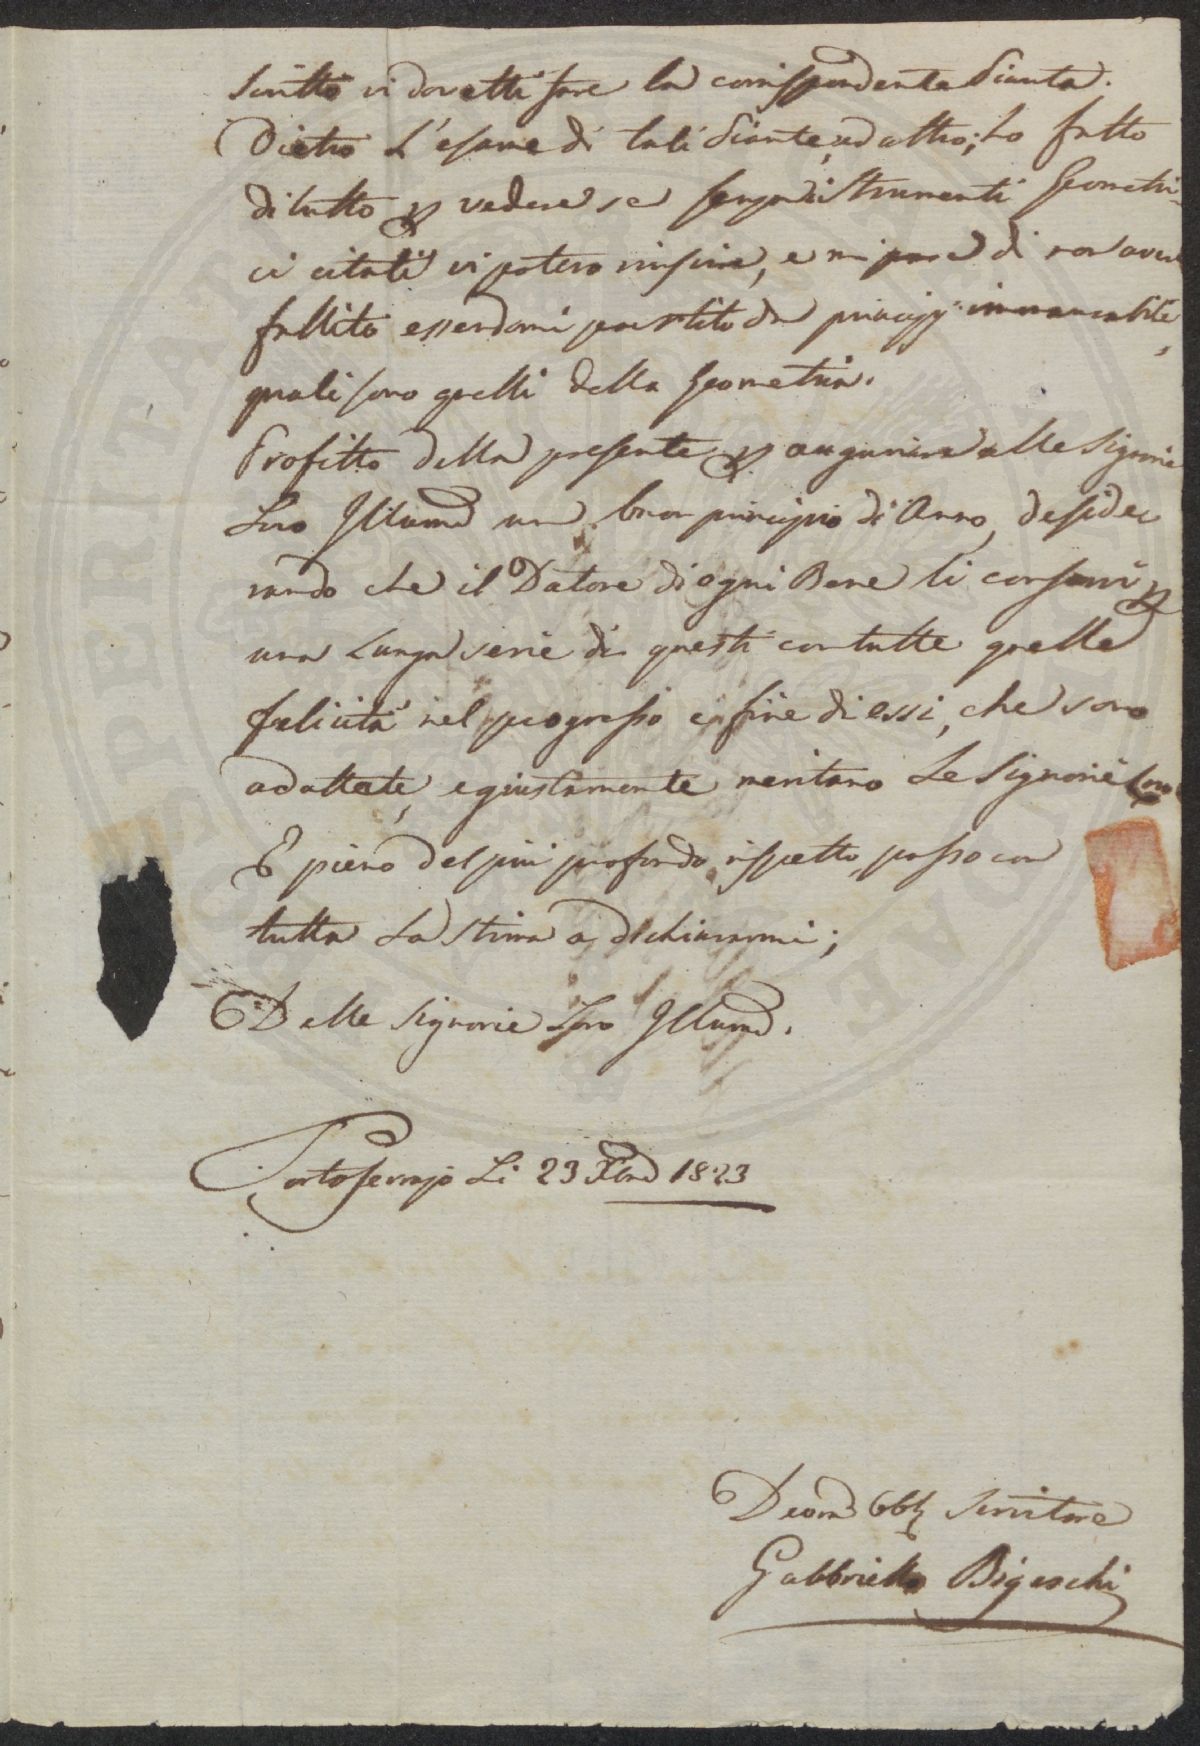 scritto vi dovetti fare la corrispondente Pianta.
Dietro L'esame di tali Piante, ed altro; ho fatto
di tutto p vedere se senza istrumenti Geometri-
ci citati vi potevo riuscire, e mi pare di non aver
fallito essendomi partito da principj immancabili,
quali sono quelli della Geometria.
Profitto della presente p augurare alle Signorie
Loro Illume un buon principio di Anno, deside
rando che il Datore di ogni Bene li conservi p
una Lunga serie di questi con tutte quelle
felicità nel progresso e fine di essi, che sono
adattate, e giustamente meritano Le Signorie Loro
E pieno del più profondo rispetto passo con
tutta La stima a dichiararmi;
Delle Signorie Loro Illume.
Portoferrajo Li 23 Xbre 1823
Devmo Obb Servitore
Gabbriello Bigeschi